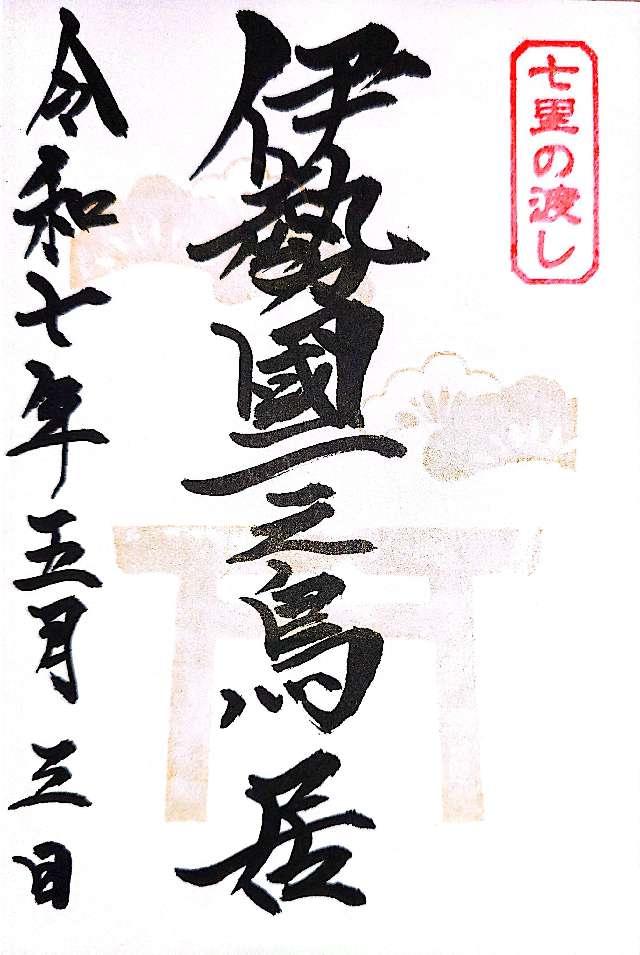 七里の渡し
伊勢國一之鳥居
令和七年五月三日